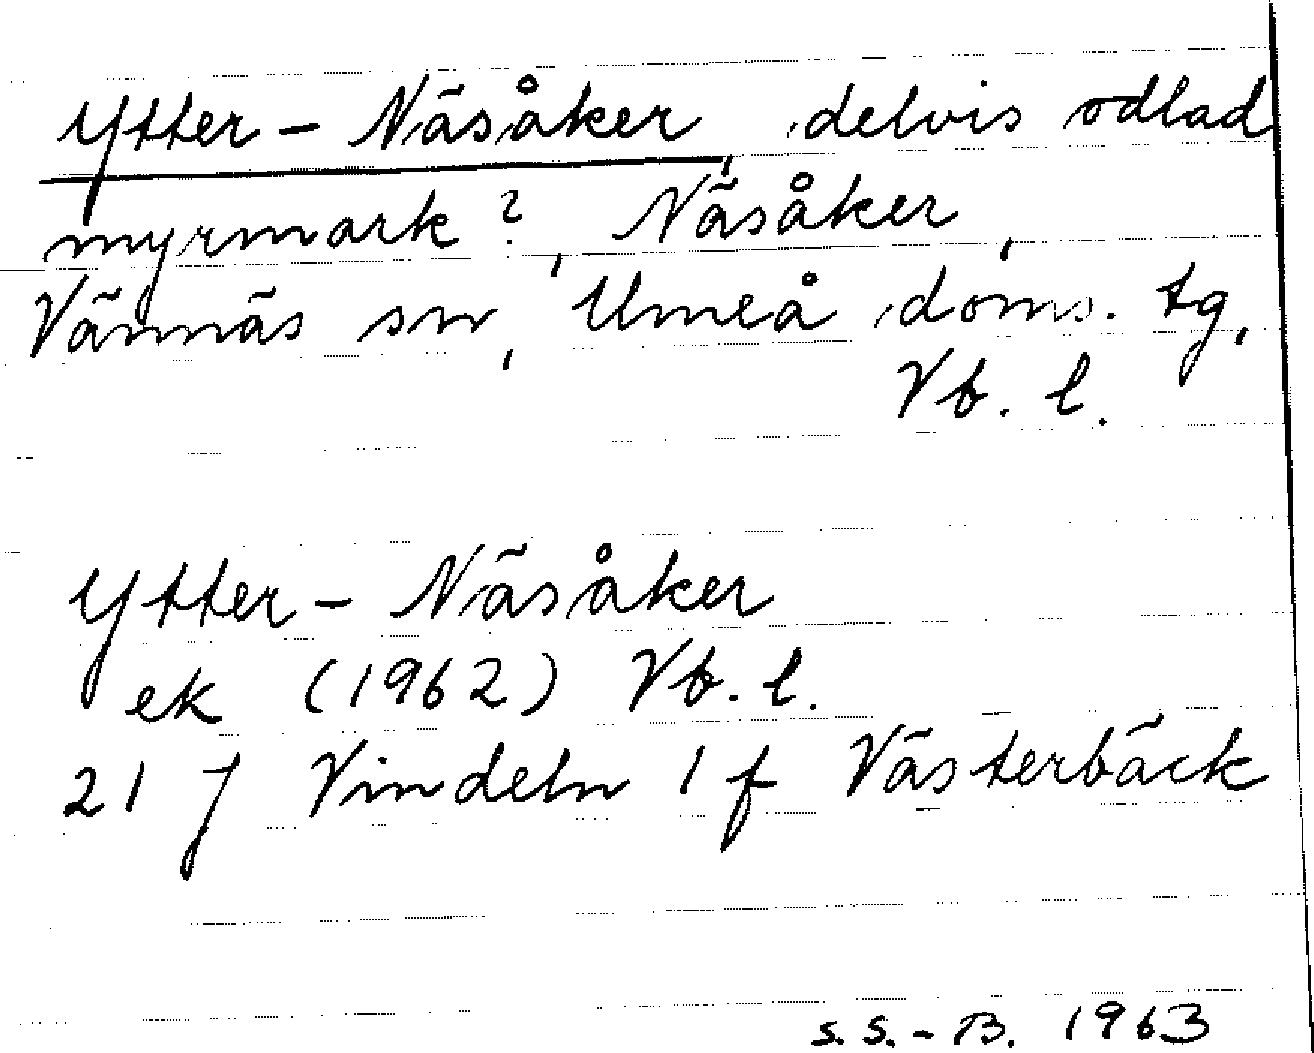 Ytter-Näsåker, delvis odlad
myrmark?, Näsåker,
Vännäs sn, Umeå doms. tg,
Vb. l.
Ytter-Näsåker
ek (1962) Vb. l.
21 J Vindeln 1 f Västerbäck
S. S.-B. 1963